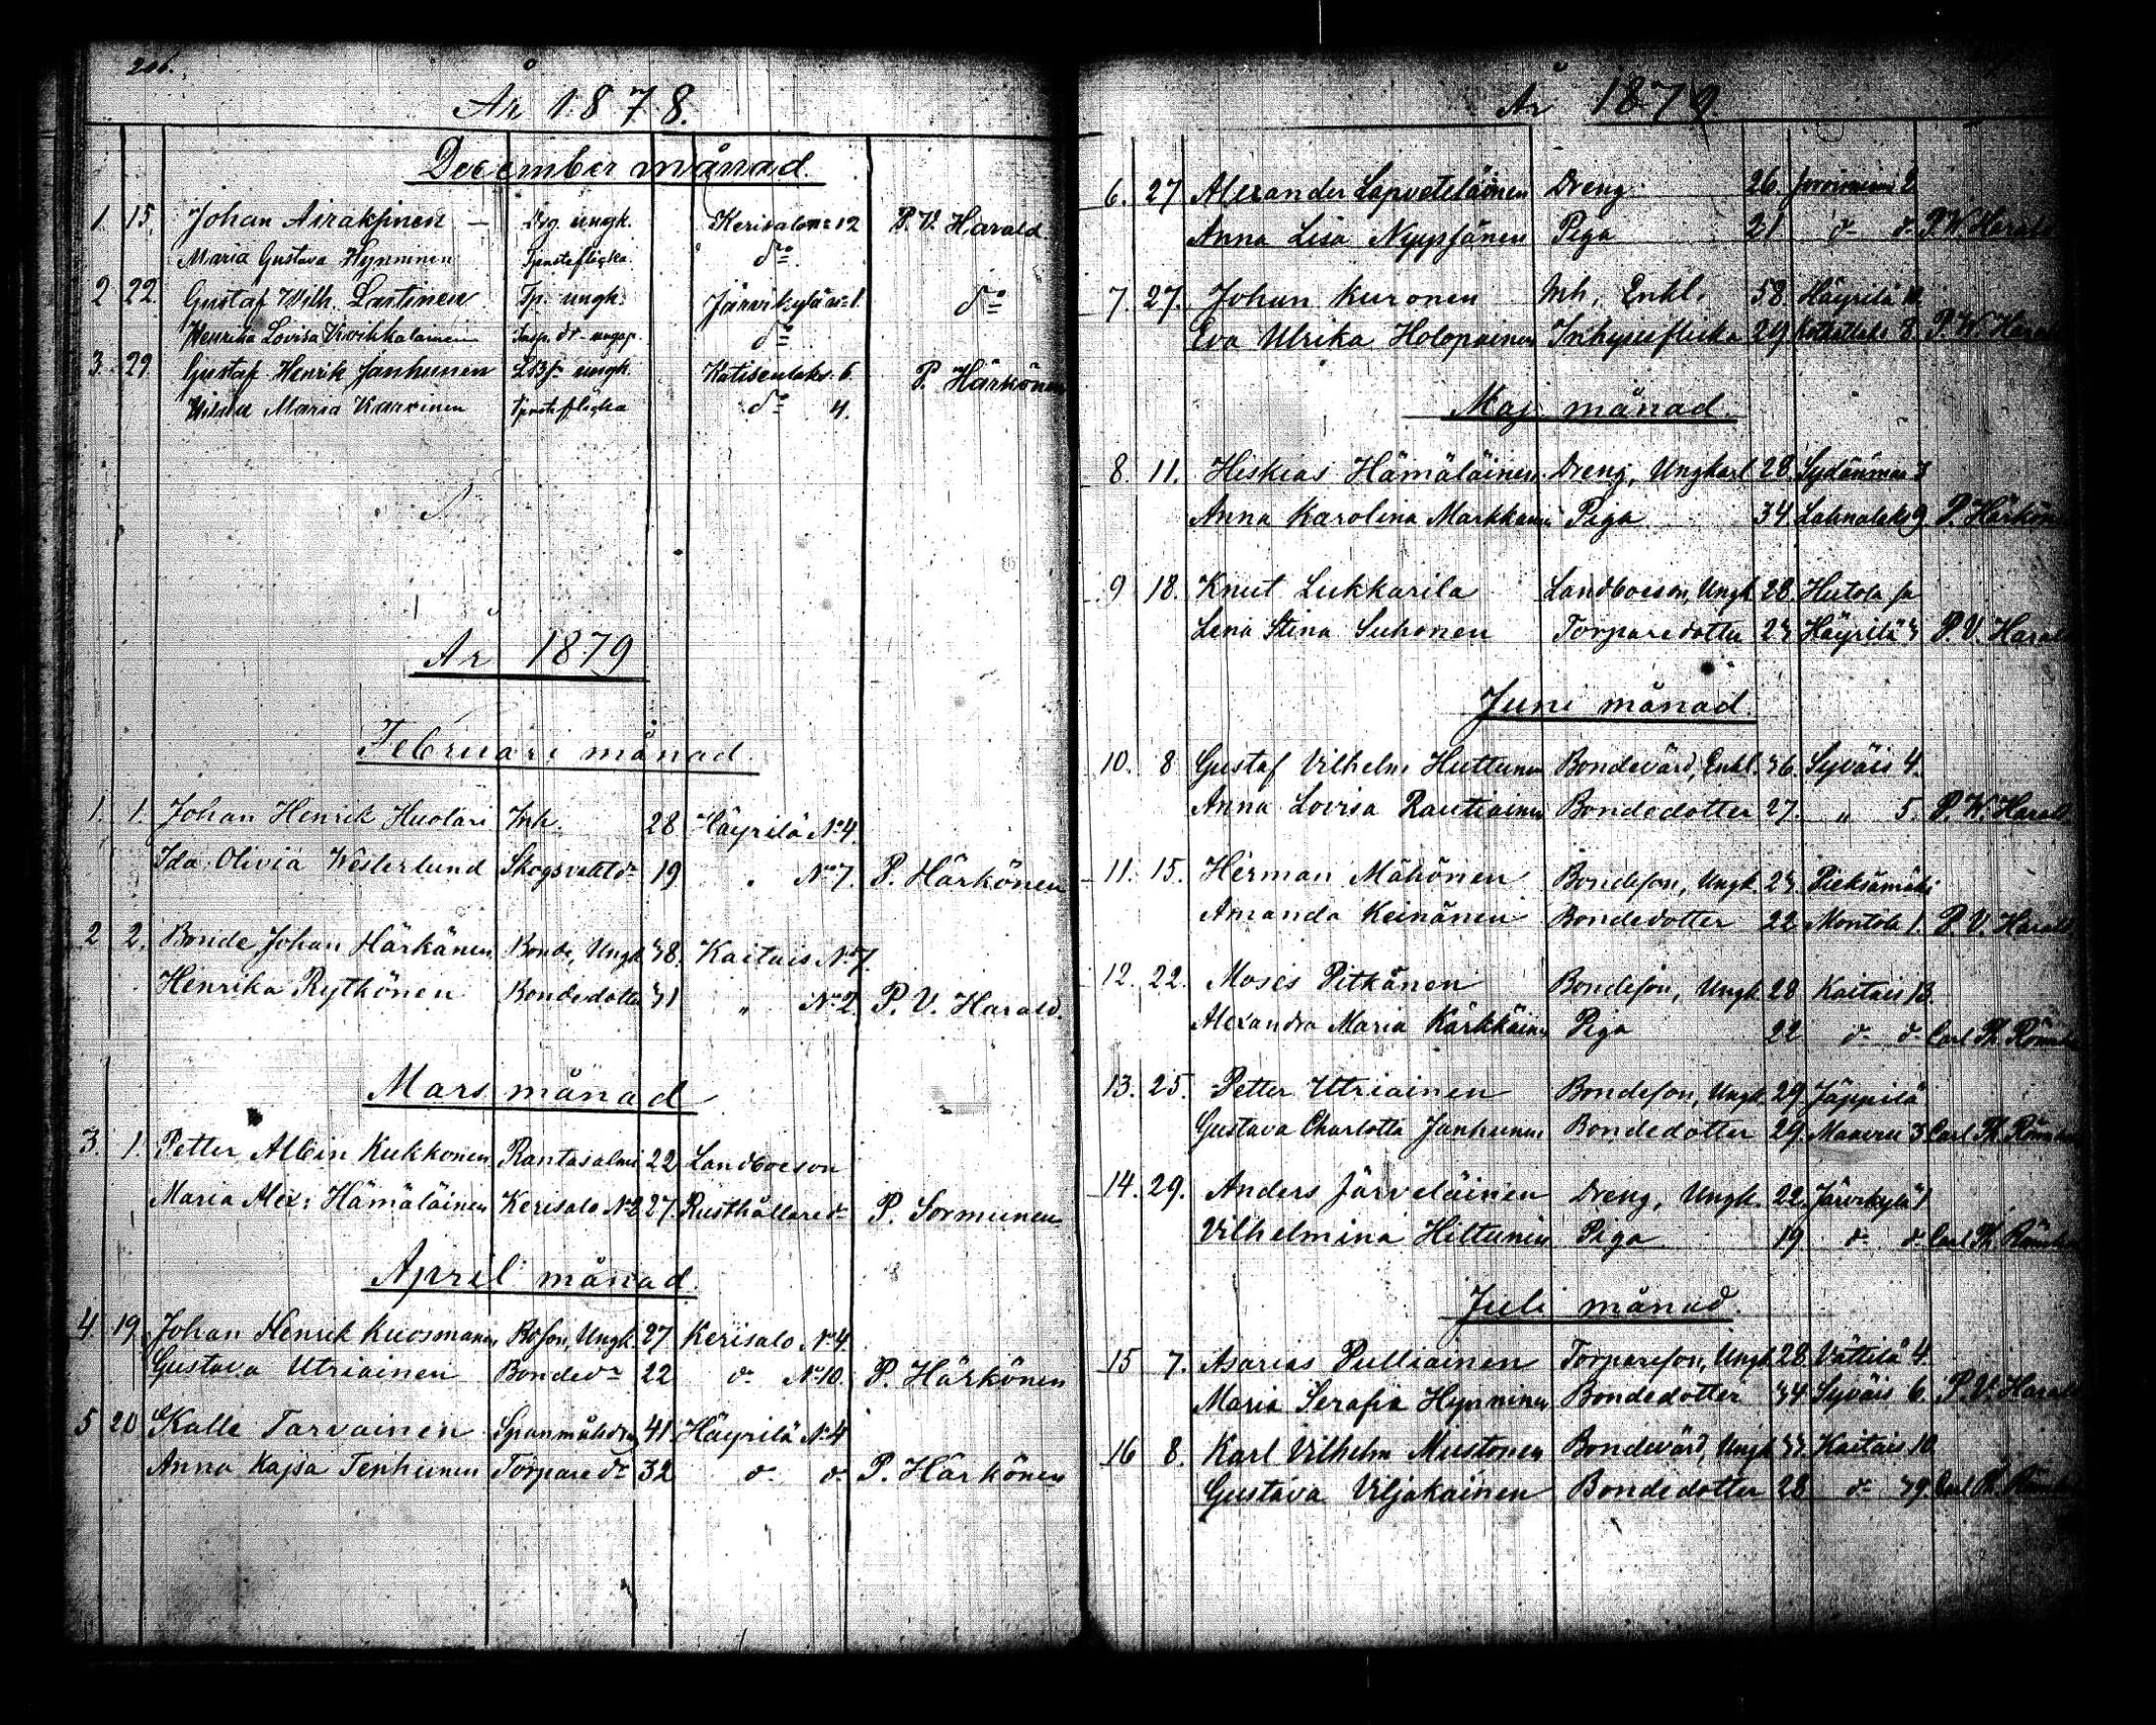 206.
År 1878.
December månad.
1. 15. Johan Airaksinen – Drg. ungk. Kerisalo No 12 P. V. Harald
Maria Gustava Hynninen Tjensteflicka do
2 22. Gustaf Wilh. Lastinen Tp. ungk. Järvikylä No 1. do
Henrika Lovisa do
3. 29. Gustaf Henrik Janhunen ungk. Katisenlaks. 6. P. Härkönen
Maria Karvinen Tjensteflicka do 4.
År 1879
Februari månad.
1. 1. Johan Henrik Huolari Inh. 28 Häyrilä No 4.
Ida Olivia Westerlund Skogsvaktdr 19 " No 7. P. Härkönen
2 2. Bonde Johan Härkänen Bonde, Ungk. 38. Kaitais No 7.
Henrika Rytkönen Bondedotter 31 " No 2. P. V. Harald.
Mars månad
3. 1. Petter Albin Kukkonen Rantasalmi 22 Landboeson
Maria Alex: Hämäläinen Kerisalo No 2 27. Rusthållaredr P. Sormunen
April månad.
4. 19. Johan Henrik Kuosmanen Boson, Ungk. 27 Kerisalo No 4.
Gustava Utriainen Bondedr 22 do No 10. P. Härkönen
5 20 Kalle Tarvainen 41 Häyrilä No 4
Anna Kajsa Tenhunen Torparedr 32 do do P. Härkönen
År 1879.
6. 27 Alexander Lapveteläinen Dreng 26. Jorois 2
Anna Lisa Nyyssönen Piga 21 do do P. W. Harald
7. 27. Johan Kuronen Inh. Enkl. 58. Häyrilä 10.
Eva Ulrika Holopainen Inhyseflicka 29 8. P. W. Harald
Maj månad.
8. 11. Heskias Hämäläinen Dreng, Ungkarl 28. Sydänmaa 3
Anna Karolina Markkanen Piga 34 Lahnalaks 9 P. Härkönen
9 18. Knut Lukkarila Landboeson, Ungk. 28. Hutola
Lena Stina Suhonen Torparedotter 23 Häyrilä 3 P. V. Harald
Juni månad.
10. 8 Gustaf Vilhelm Huttunen Bondevärd, Enkl. 36. Syväis 4.
Anna Lovisa Rautiainen Bondedotter 27. " 5. P. W. Harald
11. 15. Herman Mähönen Bondeson, Ungk. 23 Pieksämäki
Amanda Keinänen Bondedotter 22 Montola 1. P. V. Harald
12. 22. Moses Pitkänen Bondeson, Ungk. 28 Kaitais 13.
Alexandra Maria Kärkkäinen Piga 22 do do Carl Th.
13. 25. Petter Utriainen Bondeson, Ungk. 29 Jäppilä
Gustava Charlotta Janhunen Bondedotter 29. Maavesi 3 Carl Th.
14. 29. Anders Järveläinen Dreng, Ungk. 22. Järvikylä 1
Vilhelmina Hiltunen Piga 19 do do Carl Th.
Juli månad.
15 7. Asarias Pulliainen Torpareson, Ungk. 28. Vättilä 4.
Maria Serafia Hynninen Bondedotter 34 Syväis 6. P. V. Harald
16 8. Karl Vilhelm Mustonen Bondevärd, Ungk. 33. Kaitais 10
Gustava Viljakainen Bondedotter 28 do 39. Carl Th.